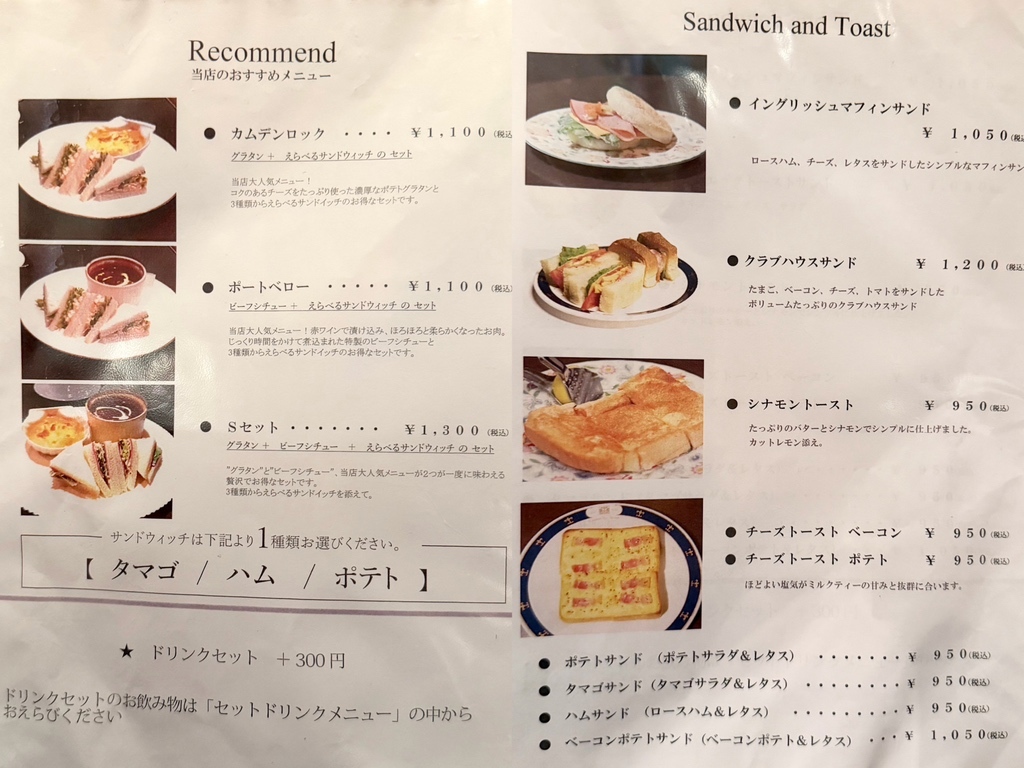 Recommend
当店のおすすめメニュー
● カムデンロック ・・・・ ￥1,100 (税込
グラタン＋ えらべるサンドウィッチ の セット
当店大人気メニュー！
コクのあるチーズをたっぷり使った濃厚なポテトグラタンと
3種類からえらべるサンドイッチのお得なセットです。
● ポートベロー ・・・・・ ￥1,100 (税込
ビーフシチュー＋ えらべるサンドウィッチ の セット
当店大人気メニュー！赤ワインで漬け込み、ほろほろと柔らかくなったお肉。
じっくり時間をかけて煮込まれた特製のビーフシチューと
3種類からえらべるサンドイッチのお得なセットです。
● Sセット ・・・・・・・ ￥1,300 (税込)
グラタン＋ ビーフシチュー ＋ えらべるサンドウィッチ の セット
"グラタン"と"ビーフシチュー"、当店大人気メニューが2つが一度に味わえる
贅沢でお得なセットです。
3種類からえらべるサンドイッチを添えて。
サンドウィッチは下記より1種類お選びください。
【 タマゴ / ハム / ポテト 】
★ ドリンクセット ＋300円
ドリンクセットのお飲み物は「セットドリンクメニュー」の中から
おえらびください
Sandwich and Toast
● イングリッシュマフィンサンド
￥ 1,050 (税込
ロースハム、チーズ、レタスをサンドしたシンプルなマフィンサン
● クラブハウスサンド ￥ 1,200 (税込
たまご、ベーコン、チーズ、トマトをサンドした
ボリュームたっぷりのクラブハウスサンド
● シナモントースト ￥ 950 (税込)
たっぷりのバターとシナモンでシンプルに仕上げました。
カットレモン添え。
● チーズトースト ベーコン ￥ 950 (税込)
● チーズトースト ポテト ￥ 950 (税込)
ほどよい塩気がミルクティーの甘みと抜群に合います。
● ポテトサンド （ポテトサラダ&レタス） ・・・・・・・￥ 950 (税込)
● タマゴサンド（タマゴサラダ&レタス） ・・・・・・・・￥ 950 (税込)
● ハムサンド （ロースハム&レタス） ・・・・・・・・・￥ 950 (税込)
● ベーコンポテトサンド（ベーコンポテト&レタス） ・・・￥ 1,050 (税込)